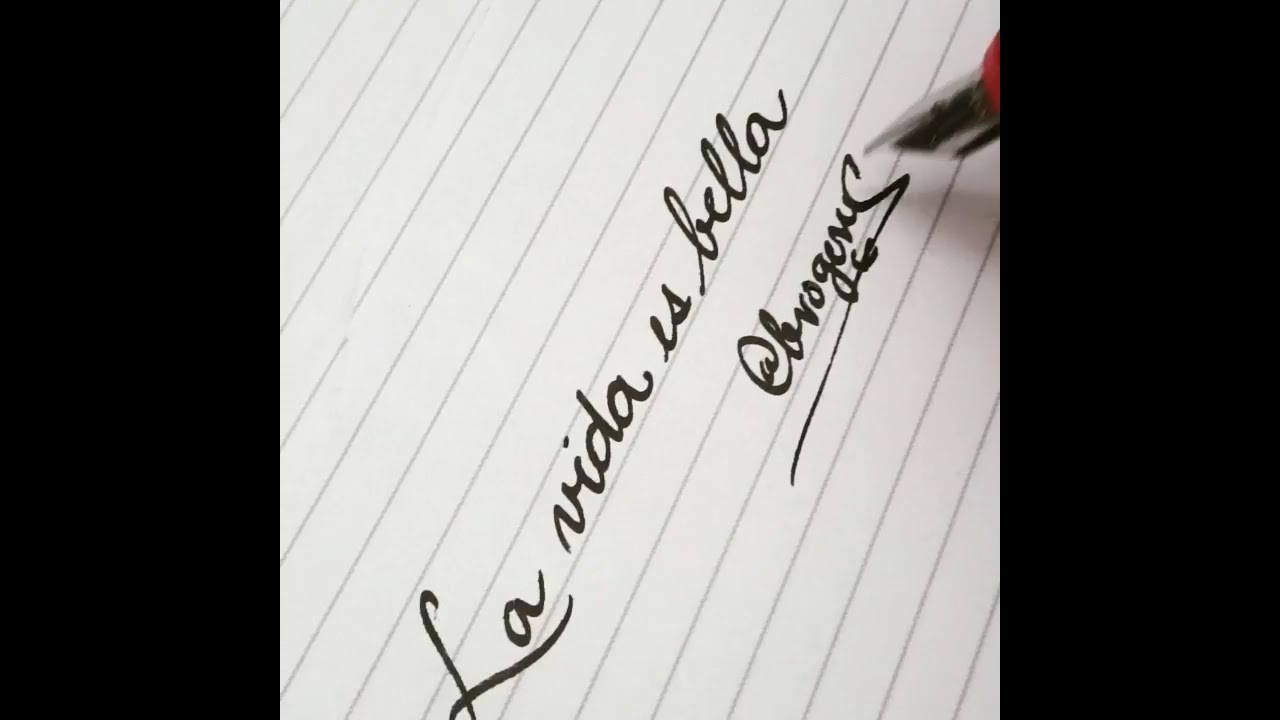 La vida es bella
@brogens